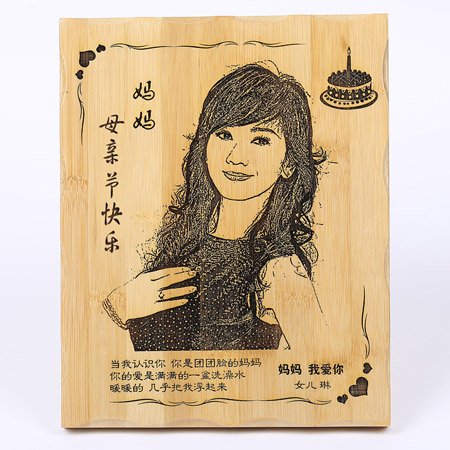 妈妈
母亲节快乐
当我认识你 你是团团脸的妈妈
你的爱是满满的一盆洗澡水
暖暖的 几乎把我浮起来
妈妈 我爱你
女儿 琳